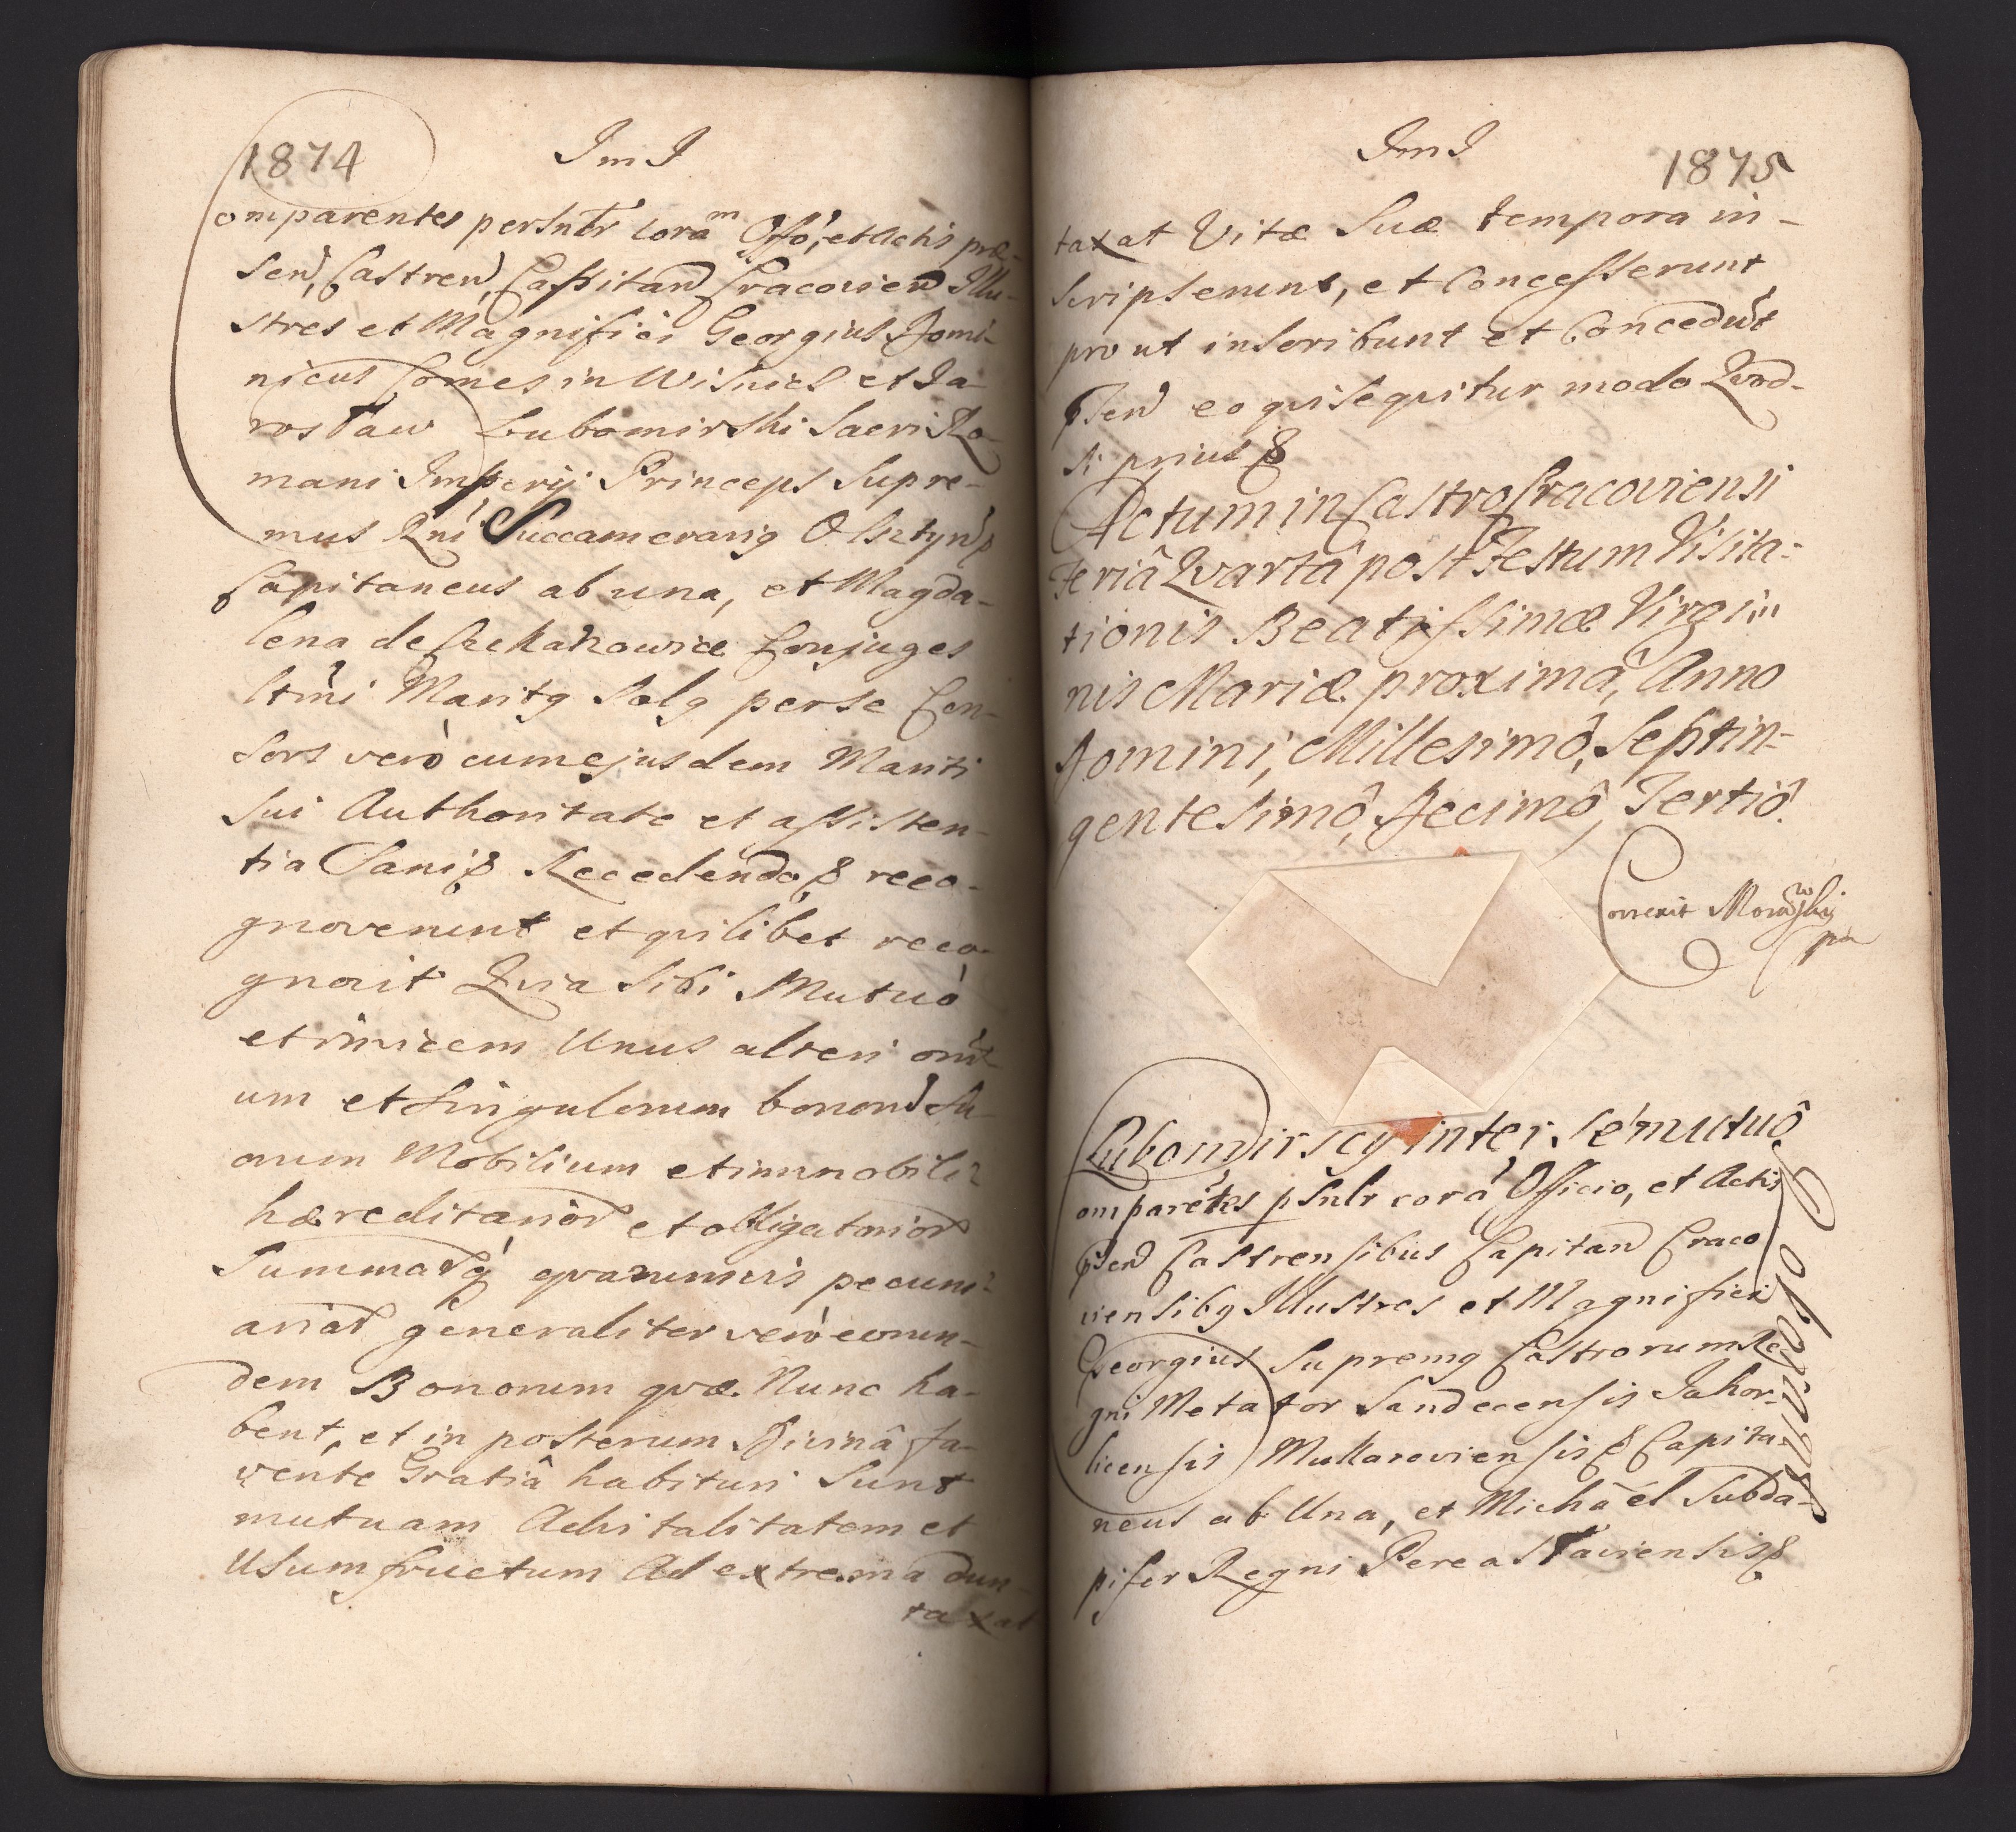 1874
Im I
omparentes persnlr coram Offo, et Actis præ-
sen, Castren, Capitan Cracovien Illu-
stres et Magnifici Georgius Domi-
nicus Comes in Wisnicz et Ja-
rosław Lubomirski Sacri Ro-
mani Imperij Princeps Supre-
mus Rni Succamerarig Olsztyn
Capitaneus ab una, et Magda-
lena de Conjuges
Mariti Salg per se Con-
sors verò cum ejusdem Mariti
sui Authoritate et assisten-
tia Sani & Recedendo & reco-
gnoverunt et qvilibet reco-
gnovit Qvia sibi Mutuò
et invicem Unus alteri omĩ-
um et singulorum bonor Su-
orum Mobilium et immobili-
hæreditarior et obligatorior
Summarq qvarumvis pecuni-
ariar generaliter verò eorun-
dem Bonorum qvæ Nunc ha-
bent, et in posterum Divinâ fa-
vente Gratiâ habituri Sunt
mutuam Advitalitatem et
Usumfructum Ad extrema dun-
taxat
Im I
1875
taxat Vitæ Suæ tempora in-
scripserunt, et Concesserunt
prout inscribunt et Concedut
psen eo qvi seqvitur modo Qvod-
si prius &
Actum in Castro Cracoviensi
Feriâ Qvartâ post Festum Visita-
tionis Beatissimæ Virgi-
nis Mariæ proximâ, Anno
Domini, Millesimô, Septin-
gentesimô, Decimô, Tertiô.
Correxit
pa
Lubomirscy inter se mutuô
omparetes psnlr corã Officio, et Actis
psen Castrensibus Capitan Craco
viensibg Illustres et Magnifici
Georgius Supremg Castrorum Re-
gni Metator Sandecensis Jahor-
licensis & Capita-
neus ab Una, et Michaël Subda-
pifer Regni Pereasławiensis &